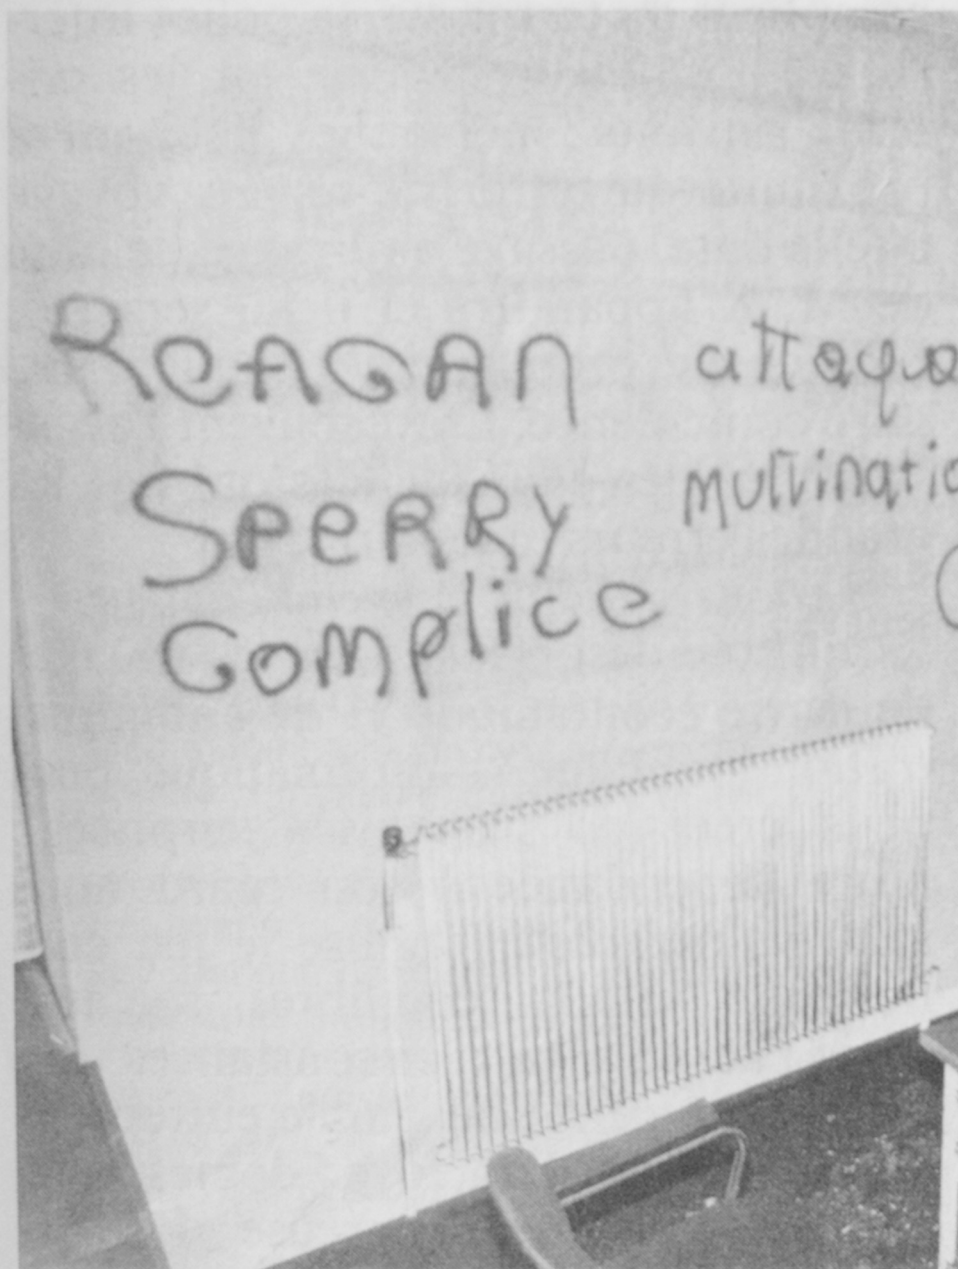 REAGAN attaque
SPERRY multinatio
Complice